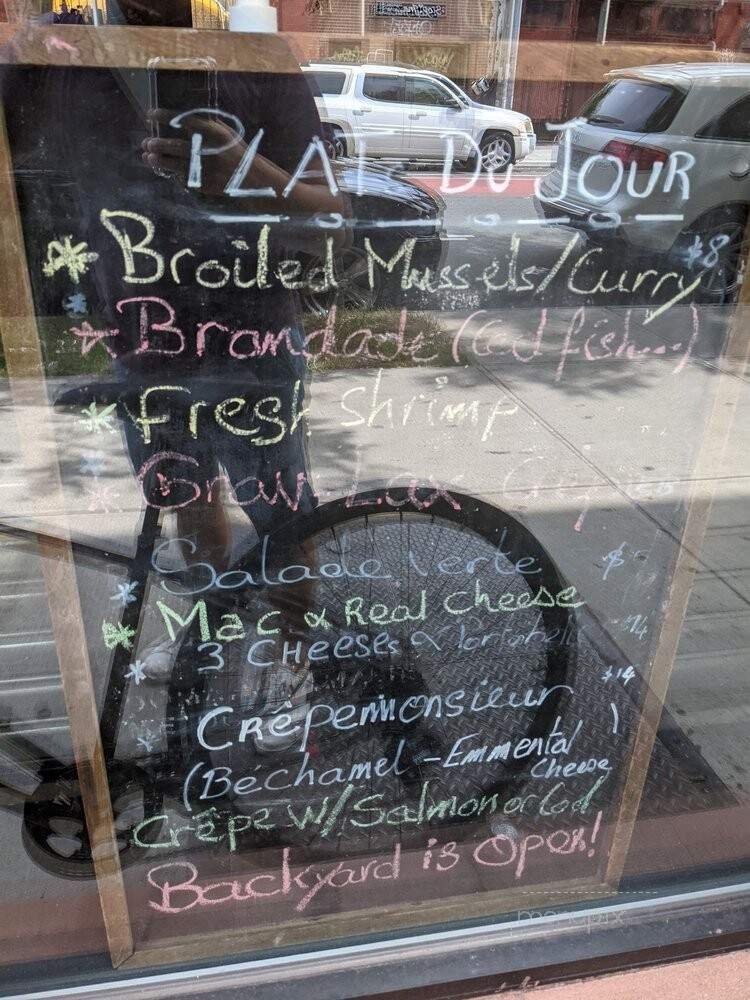 PLAT DU JOUR
* Broiled Mussels/Curry $8
* Brandade (Cod fish...)
* Fresh Shrimp
* Grav-Lax
* Salade verte $
* Mac & Real Cheese
* 3 CHEESES & 14
* CRêpemmonsieur $14
(Béchamel - Emmental
Cheese
Crêpe W/Salmon or Cod
Backyard is Open!